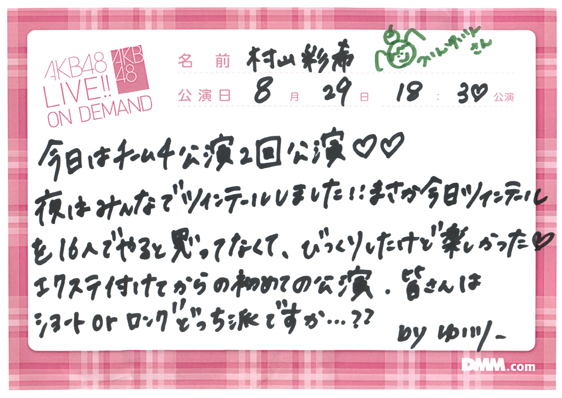 AKB48
LIVE!!
ON DEMAND
AKB
48
名前 村山彩希
さん
公演日 8月29日 18:30 公演
今日はチーム4公演2回公演♡♡
夜はみんなでツインテールしました!!まさか今日ツインテール
を16人でやると思ってなくて、びっくりしたけど楽しかった♡
エクステ付けてからの初めての公演.皆さんは
ショートorロングどっち派ですか...??
by ゆいりー
DMM.com